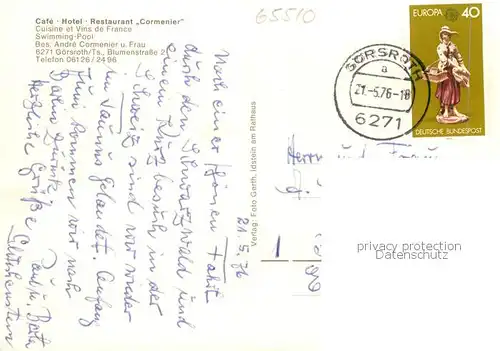 65510
Café · Hotel · Restaurant „Cormenier"
Cuisine et Vins de France
Swimming-Pool
Bes. André Cormenier u. Frau
6271 Görsroth/Ts., Blumenstraße 2
Telefon 06126/2496
EUROPA 40
DEUTSCHE BUNDESPOST
GÖRSROTH
a
21.-5.76-18
6271
21.5.76
Nach einer schönen Fahrt
durch den Schwarzwald und
einem Kurz besuch in der
Schweiz sind wir wieder
im Taunus gelandet. Anfang
Juni kommen wir nach
Herzliche Grüße
Verlag: Foto Gerth, Idstein am Rathaus
Herrn und Frau
privacy protection
Datenschutz